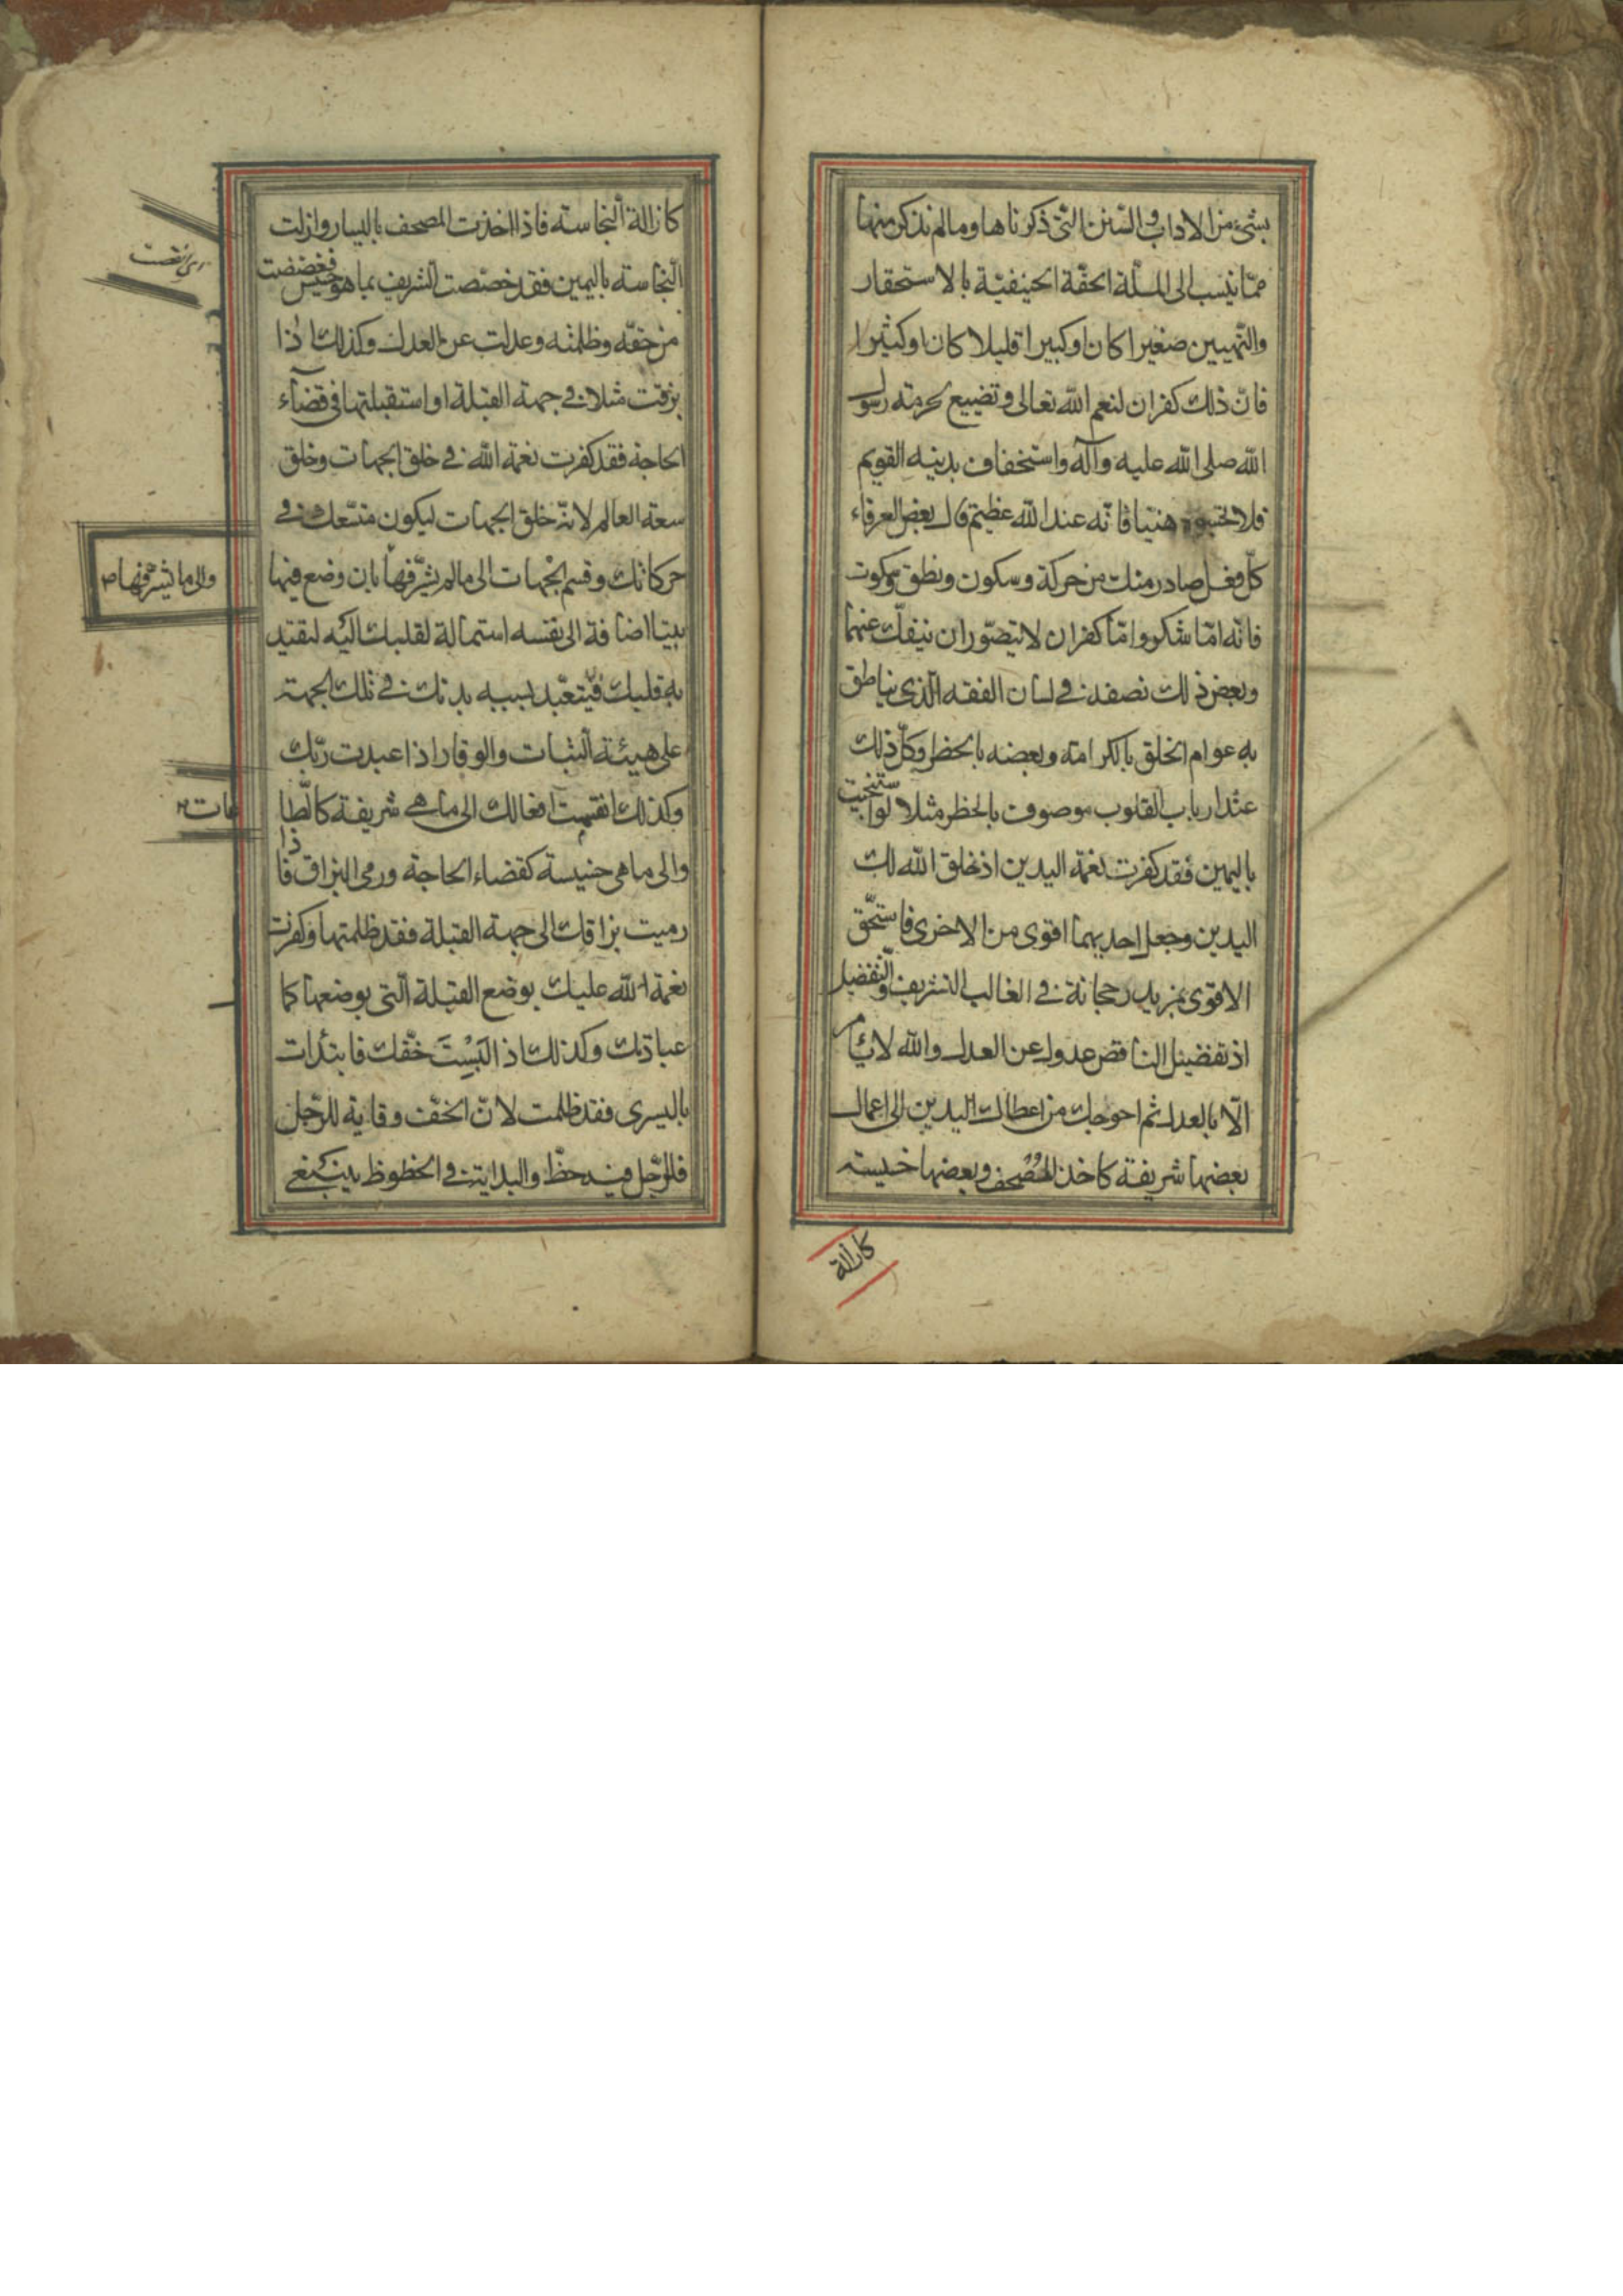 بشیء من الاداب و السنن التی ذکرناها و مالم نذکر منها
ممّا ینسب الی الملّة الحقّة الحنیفیّة بالاستحقار
والتّهیین صغیرا کان او کبیرا قلیلا کان او کثیرا
فانّ ذلک کفران لنعم اللّه تعالی و تضییع لحرمة رسول
اللّه صلی اللّه علیه و آله و استخفاف بدینه القویم
فلا هنیّا فانّه عند اللّه عظیم قال بعض العرفاء
کلّ فعل صادر منک من حرکة و سکون و نطق و سکوت
فانّه امّا شکر و امّا کفران لا یتصوّر ان ینفکّ عنهما
و بعض ذلک نصفه فی لسان الفقه الّذی یناطق
به عوام الخلق بالکرامة و بعضه بالحظر و کلّ ذلک
عند ارباب القلوب موصوف بالحظر مثلا لو استنجیت
بالیمین فقد کفرت نعمة الیدین اذ خلق اللّه لک
الیدین و جعل احدیهما اقوی من الاخری فاستحّق
الاقوی بمزید رجحانة فی الغالب التشریف و التّفضیل
اذ تفضیل الناقص عدول عن العدل و اللّه لا یأمر
الّا بالعدل ثم احوجک من اعطاک الیدین الی اعمال
بعضها شریفة کاخذ المُصْحف و بعضها خسیسة
کازالة
کازالة النّجاسته فاذا اخذت المصحف بالیسار و ازلت
النّجاسته بالیمین فقد خصّصت الشریف بما هو خسیس فغضضت
ای نقصت
من حقّه و ظلمته و عدلت عن العدل و کذلک اذا
بزقت مثلا فی جهة القبلة او استقبلتها فی قضآء
الحاجة فقد کفرت نعمة اللّه فی خلق الجهات و خلق
سعة العالم لانّه خلق الجهات لیکون متّسعک فی
حرکاتک و قسم الجهات الی مالم یشرّفها بان وضع فیها
والی ما یشرّفها ص
بیتا اضافة الی نفسه استمالة لقلبک الیه لیقیّد
به قلبک فیتعبّد بسببه بدنک فی تلک الجهة
علی هیئة الثبات و الوقار اذا عبدت ربّک
و کذلک انقسمت افعالک الی ما هی شریفة کالطّا
عات
و الی ما هی خسیسة کقضاء الحاجة و رمی البزاق فاذا
رمیت بزاقک الی جهة القبلة فقد ظلمتها و کفرت
نعمة اللّه علیک بوضع القبلة الّتی بوضعها کما
عبادتک و کذلک اذ الَبسْتَ خفّک فابتدأت
بالیسری فقد ظلمت لانّ الخفّ وقایة للرّجل
فللرّجل فیه حظّ و البدایة فی الحظوظ ینبغی